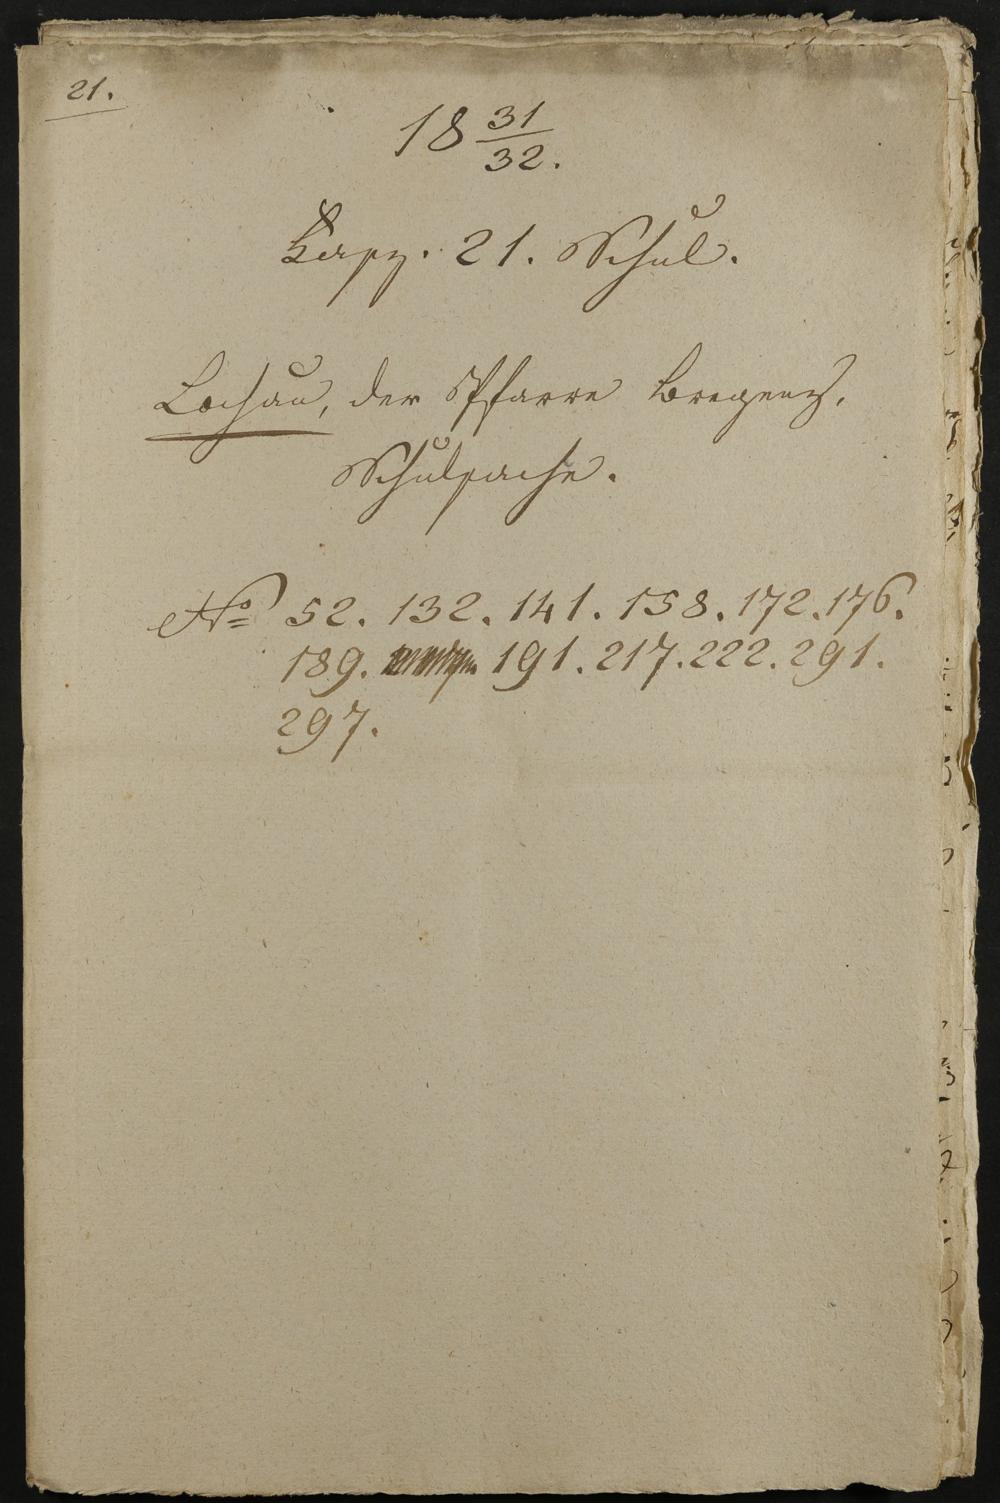 21.
18 31/32.
Fasz. 21. Schul.
Lochau, der Pfarre Bregenz,
Schulsache.
No 52. 132. 141. 158. 172. 176.
189. 191. 217. 222. 291.
297.